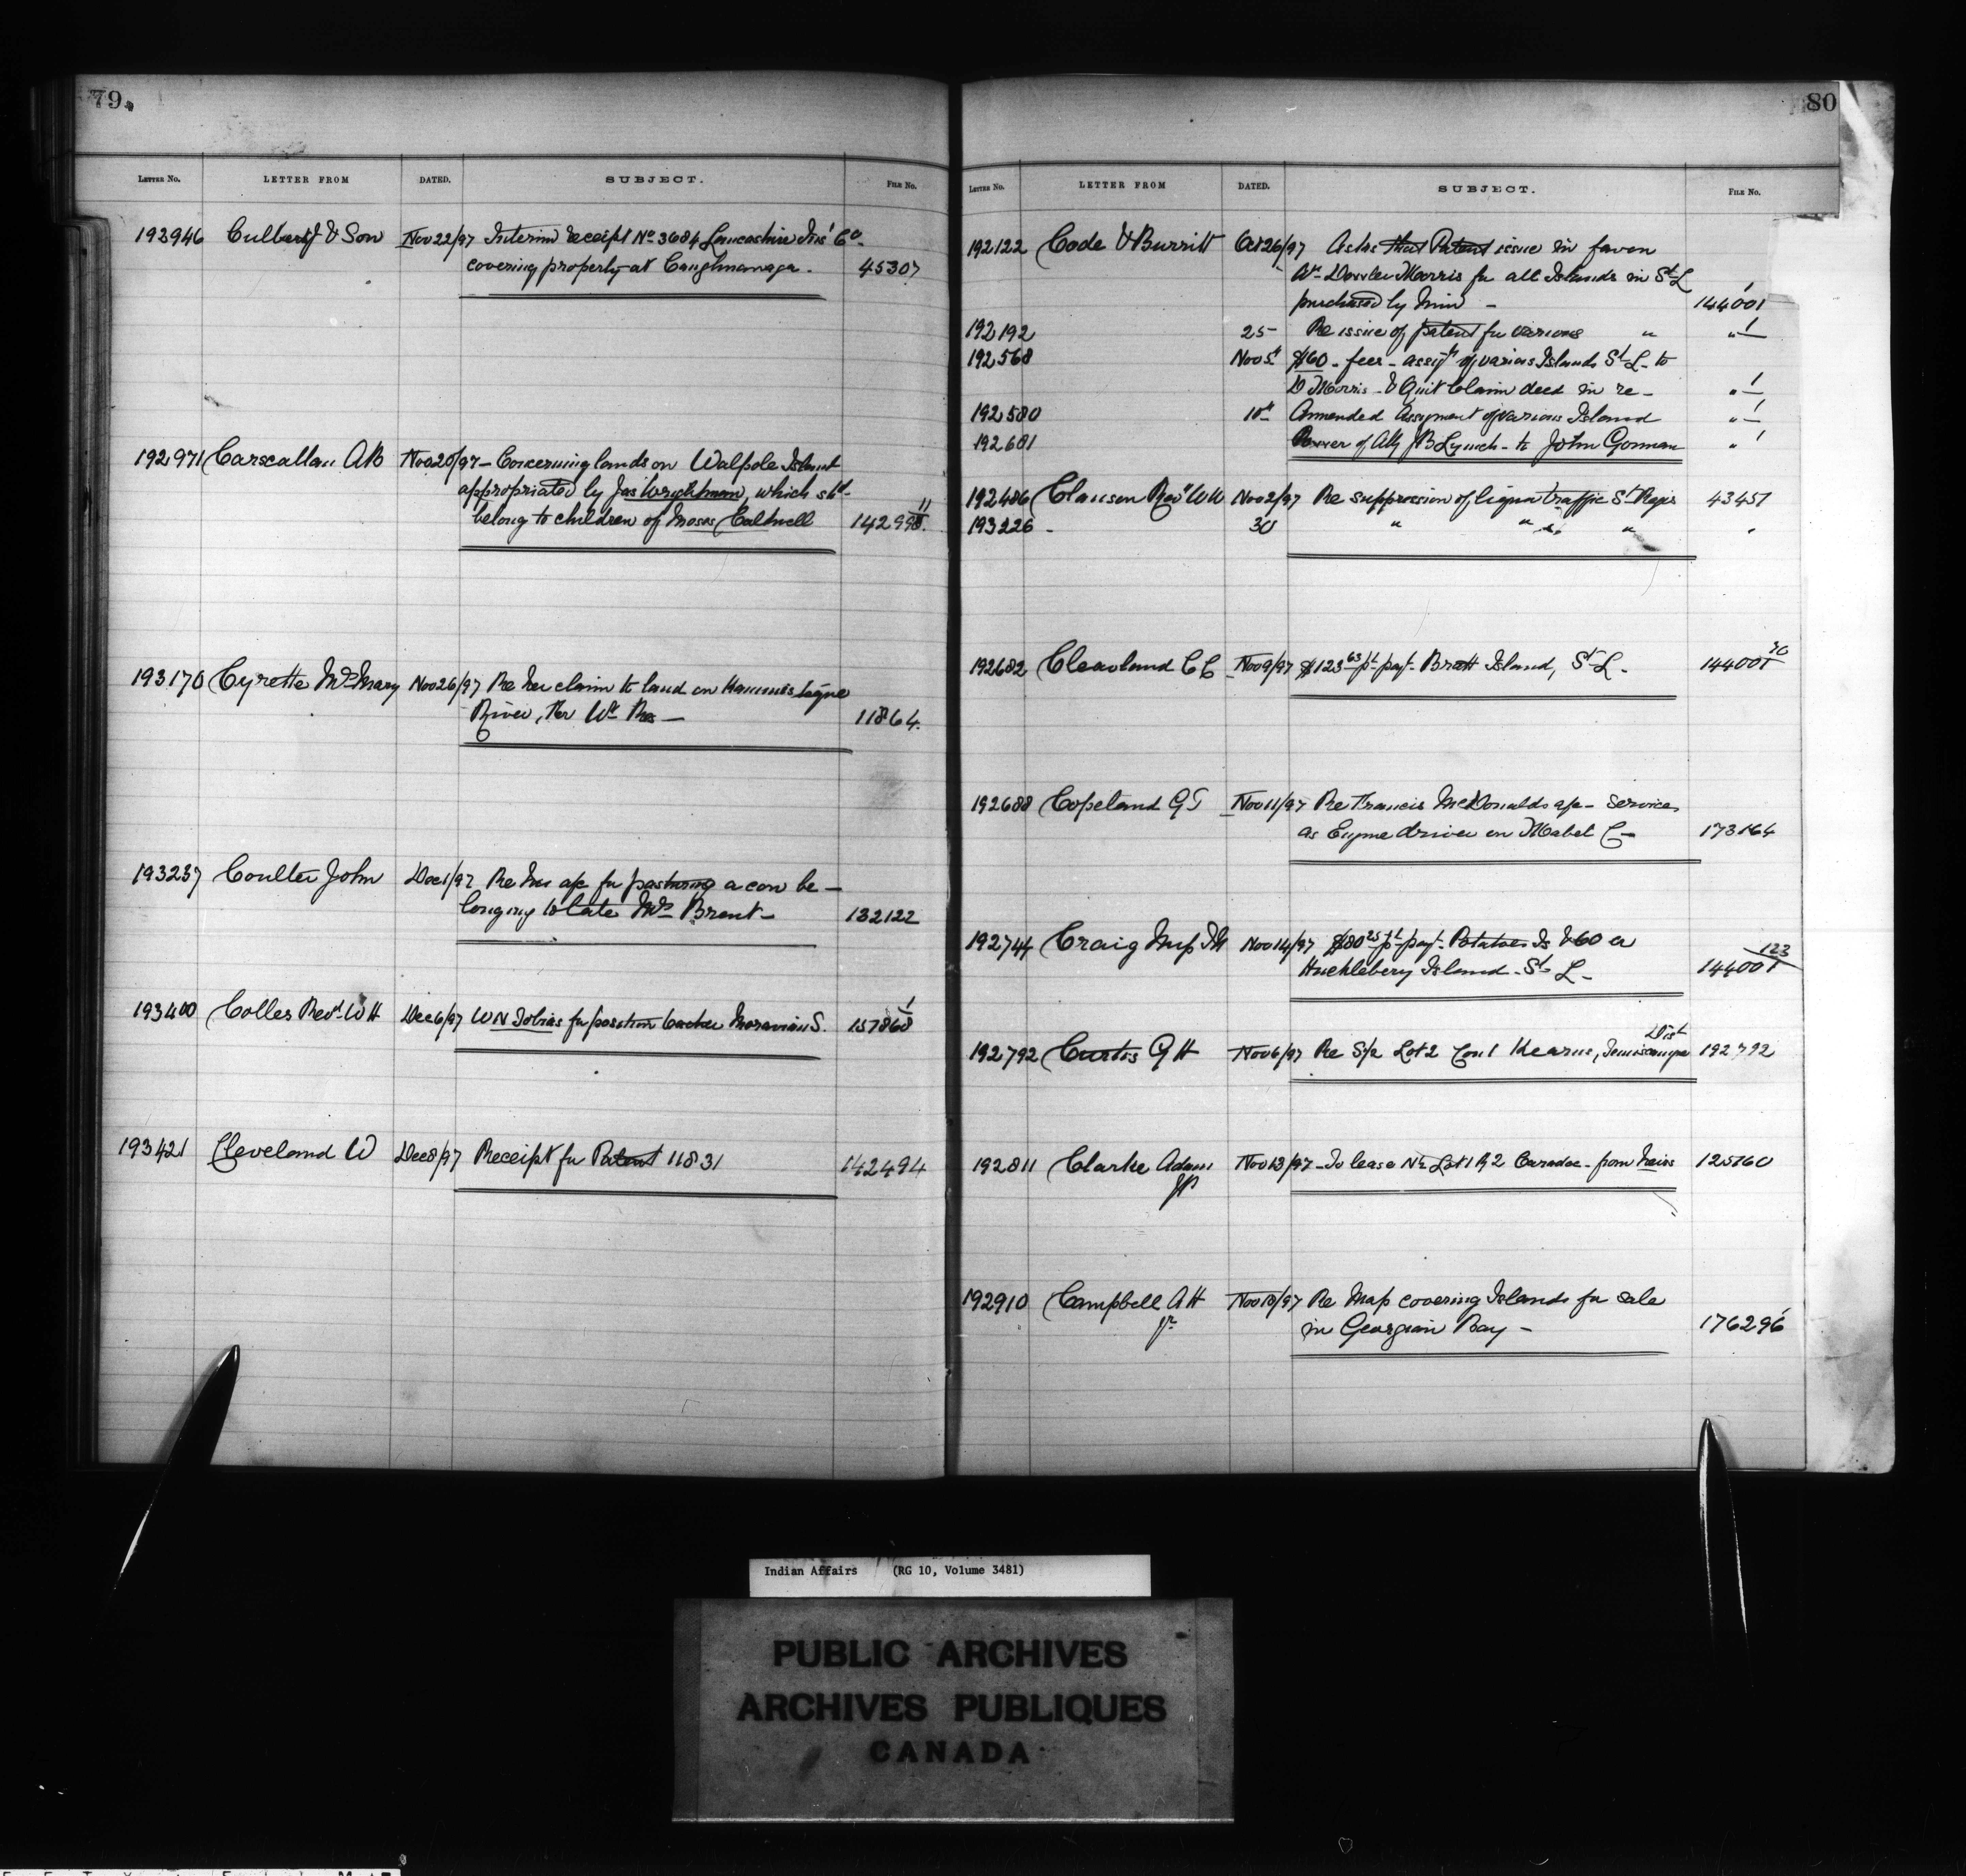 79
LETTER No. LETTER FROM DATED. SUBJECT. FILE No.
192946 Culbert J & Son Nov 22/97 Interim receipt No 3684 Lancashire Ins' Co.
covering property at Caughnawaga. 45307
192971 Carscallan AB Nov 20/97 – Concerning lands on Walpole Island
appropriated by Jas Wrightman, which shd
belong to children of Moses Caldwell 142998 11
193170 Cyrette Mrs Mary Nov 26/97 Re her claim to land on Kaministiqua
River, Fter Wm Res — 11864.
193237 Coulter John Dec 1/97 Re his a/c for pasturing a cow be –
longing to late Mrs Brant – 132122
193400 Colles Revd W H Dec 6/97 W N Tobias for position teacher Moravian S. 157868 1
193421 Cleveland W Dec 8/97 Receipt for Patent 11831 142494
80
LETTER No. LETTER FROM DATED. SUBJECT. FILE No.
192122 Code & Burritt Oct 26/97 Asks that Patent issue in favor
Morris for all Islands in St L
purchased by him – 144001 1
192192 25 Re issue of patent for various " " 1
192568 Nov 5th $160 – fees – assigt of various Islands St L – to
D Morris – & Quit Claim deed in re – " 1
192580 10th Ammended Assignment of various Island " 1
192681 Power of Atty JB Lynch – to John Gorman " 1
192486 Clausen Revd WW Nov 2/97 Re suppression of liquor traffic St Regis 43457
193226 – 30 " " " "
192682 Cleaveland C C Nov 9/97 $123 63 pt payt – Bratt Island, St L – 144001 30
192688 Copeland G T Nov 11/97 Re Francis McDonalds a/c – services
as Engine driver on Mabel C – 173164
192744 Craig Insp J M Nov 14/97 $80 25 pt payt – Potatoes Is & 60 ca
Huckleberry Island – St L – 144001 123
Dist
192792 Curtis G H Nov 6/97 Re S/2 Lot 2 Con 1 Kearns, Temiscamque 192792
192811 Clarke Adam Nov 13/97 – To lease N½ Lot 1 R 2 Caradoc – from heirs 125760
JP
192910 Campbell A H Nov 18/97 Re Map covering Islands for sale
Jr in Georgian Bay – 176296 1
Indian Affairs (RG 10, Volume 3481)
PUBLIC ARCHIVES
ARCHIVES PUBLIQUES
CANADA